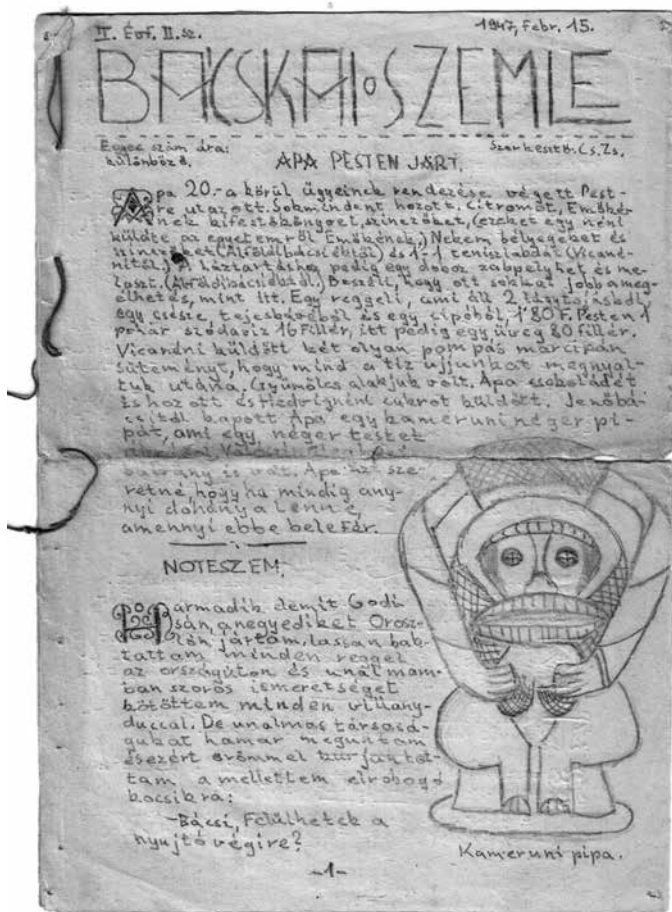 II. Évf. II. sz.
1947, Febr. 15.
BÁCSKAI SZEMLE
Egyes szám ára:
különböző.
Szerkesztő: Cs. Zs.
APA PESTEN JÁRT.
Apa 20.-a körül ügyeinek rendezése végett Pest-
re utazott. Sokmindent hozott. Citromot, Emőké-
nek kifestőkönyvet, szinezőket, (ezeket egy néni
küldte az egyetemről Emőkének.) Nekem bélyegeket és
szinezőket (Alföldibácsiéktól) és 1-1 teniszlabdát (Vicané-
nitől.) A háztartáshoz pedig egy doboz zabpelyhet és me-
laszt. (Alföldibácsiéktól.) Beszéli, hogy ott sokkal jobb a meg-
élhetés, mint itt. Egy reggeli, ami áll 2 lágytojásból,
egy csésze tejeskávéból és egy cipóból, 1'80 F. Pesten 1
pohár szódaviz 16 Fillér, itt pedig egy üveg 80 fillér.
Vicanéni küldött két olyan pompás marcipán
süteményt, hogy mind a tiz ujjunkat megnyal-
tuk utána. Gyümölcs alakjuk volt. Apa csokoládét
is hozott és Hedvignéni cukrot küldött. Jenőbá-
csitól kapott Apa egy kameruni néger pi-
pát, ami egy néger testet
bálvány is volt. Apa azt sze-
retné, hogy ha mindig any-
nyi dohánya lenne,
amennyi ebbe bele fér.
NOTESZEM.
Harmadik elemit Gödi
sán, a negyediket Orosz-
lón jártam, lassan bak-
tattam minden reggel
az országúton és unalmam-
ban szoros ismeretséget
kötöttem minden villany-
duccal. De unalmas társasá-
gukat hamar meguntam
és ezért örömmel kurjantot-
tam a mellettem elrobogó
kocsikra:
-Bácsi, Felülhetek a
nyujtó végire?
Kameruni pipa.
-1-